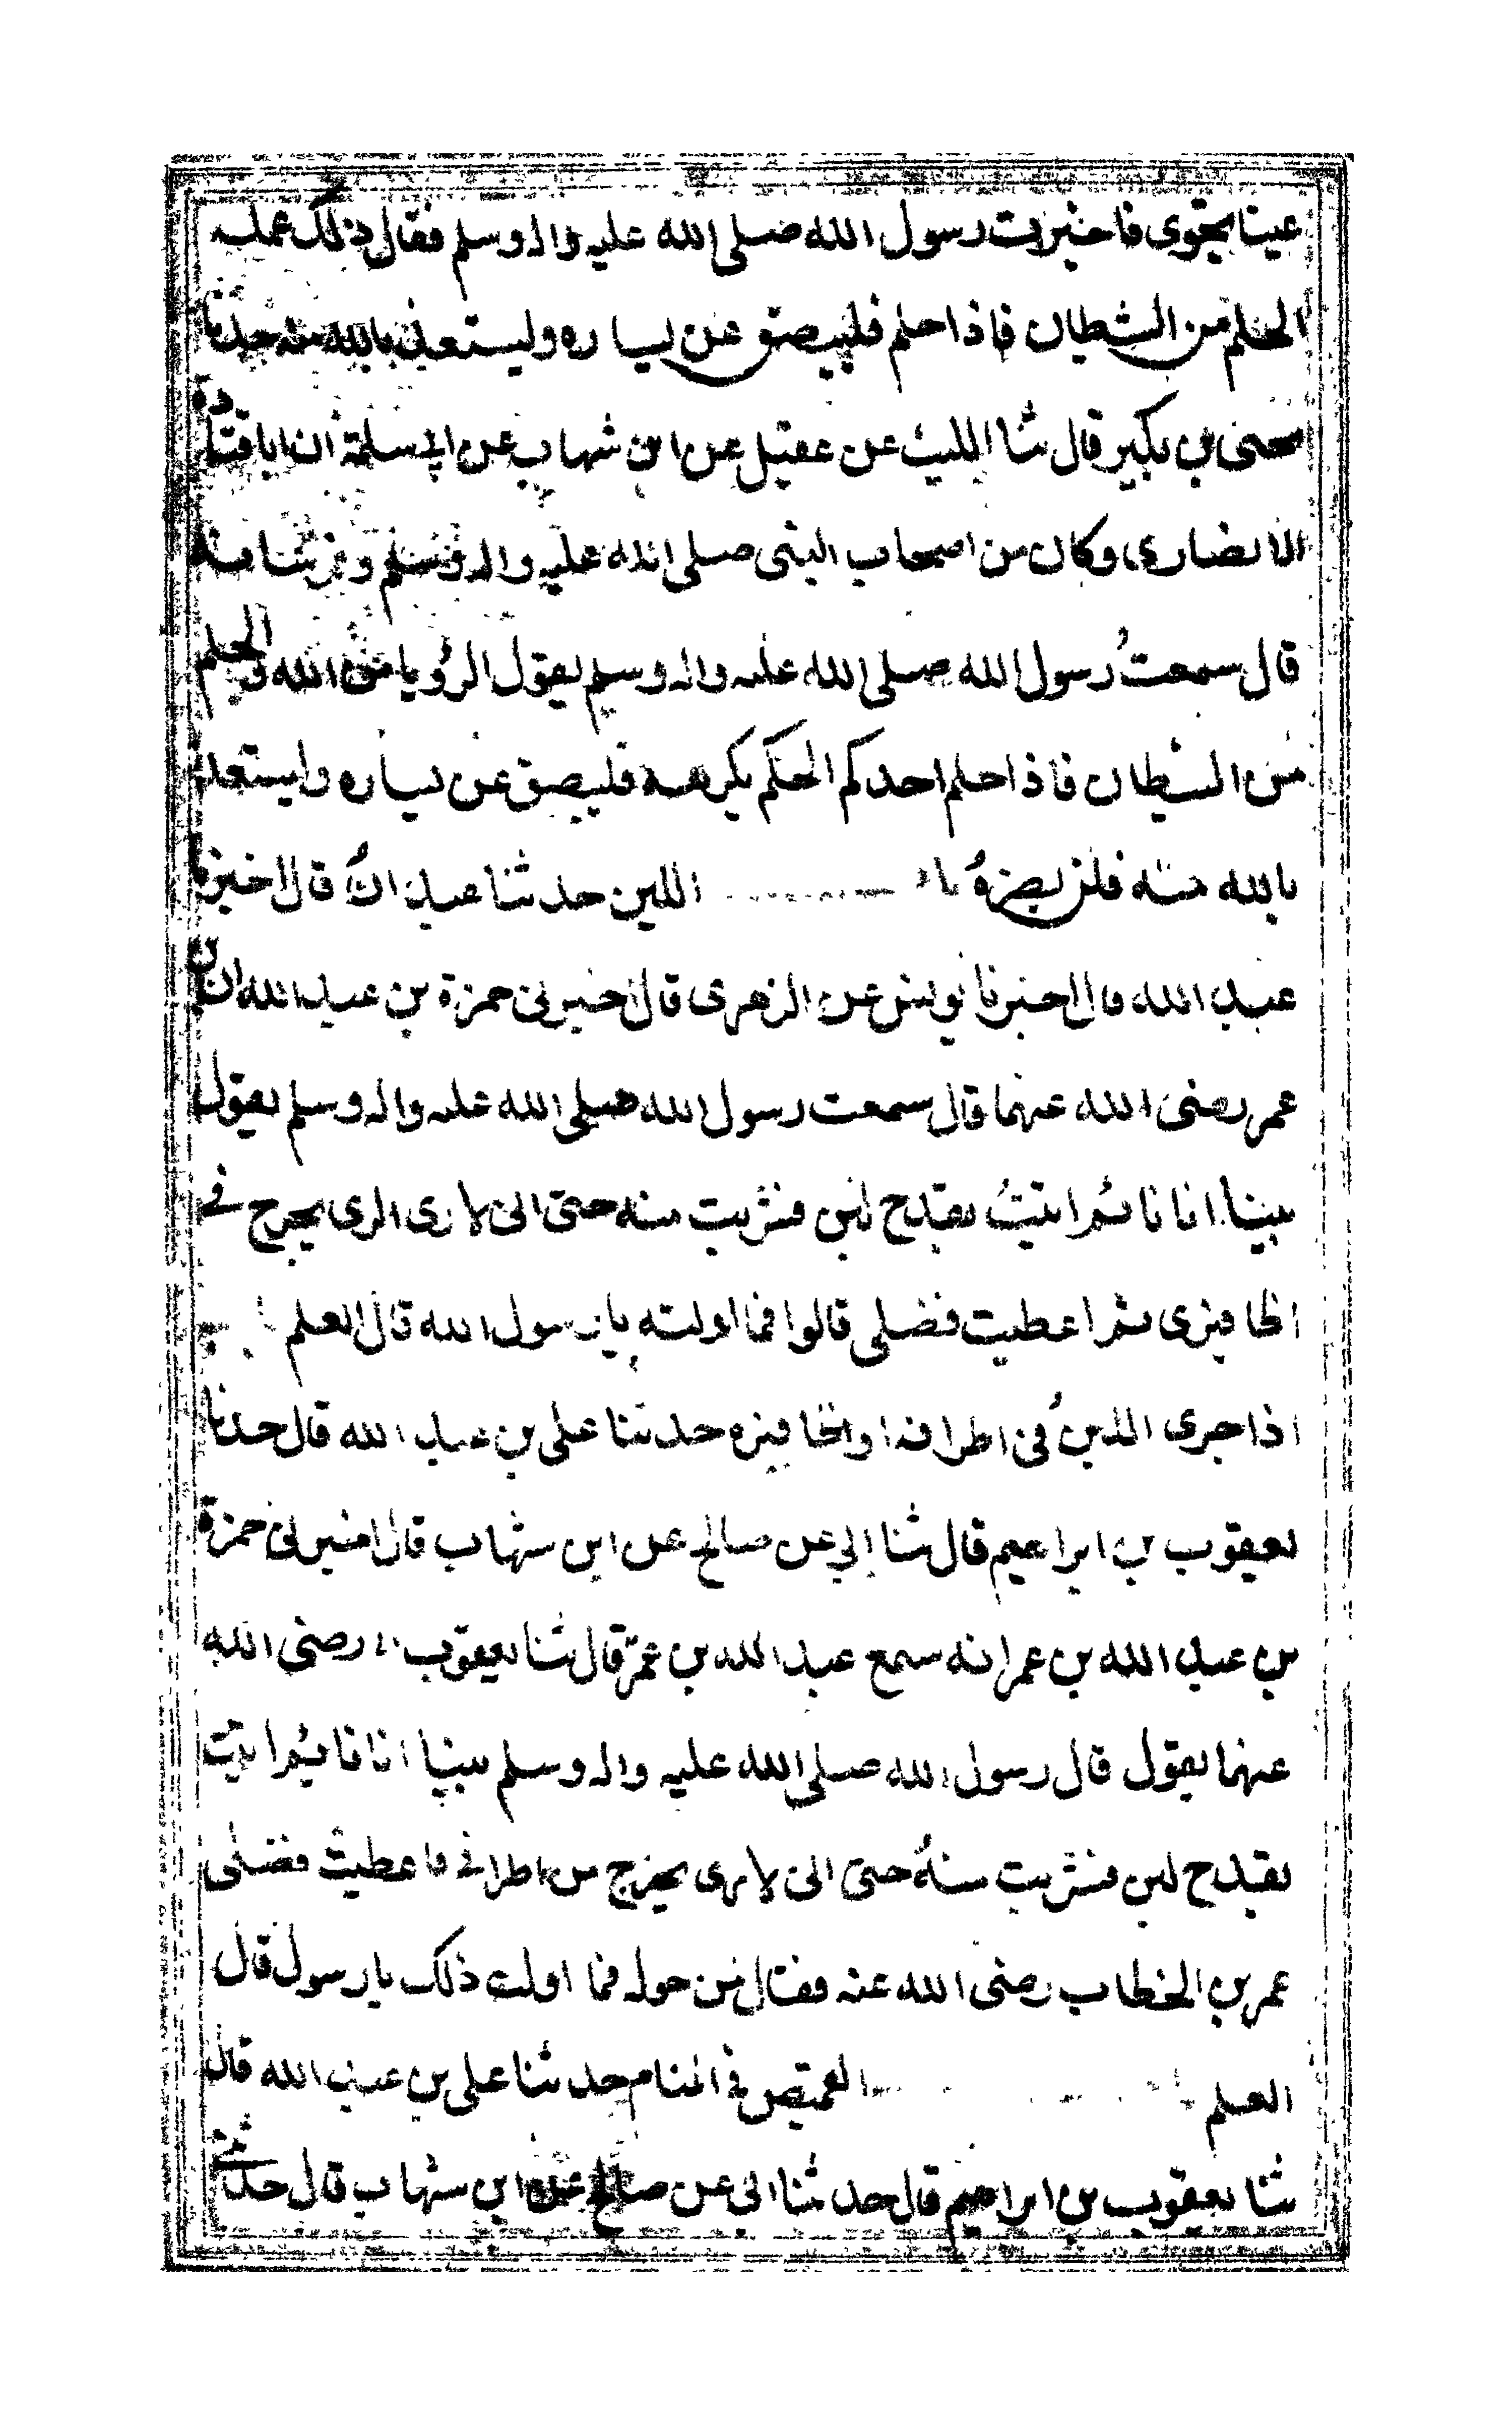 عينا تجري فاخبرت رسول الله صلى الله عليه واله وسلم فقال ذلك عمله
الحلم من الشيطان فاذا حلم فليبصق عن يساره وليستعذ بالله منه حدثنا
يحيى بن بكير قال ثنا الليث عن عقيل عن ابن شهاب عن ابي سلمة ان ابا قتادة
الانصاري وكان من اصحاب النبي صلى الله عليه واله وسلم وفرسانه
قال سمعت رسول الله صلى الله عليه واله وسلم يقول الرؤيا من الله والحلم
من الشيطان فاذا حلم احدكم الحلم يكرهه فليبصق عن يساره وليستعذ
بالله منه فلن يضره باب اللبن حدثنا عبدان قال اخبرنا
عبد الله قال اخبرنا يونس عن الزهري قال اخبرني حمزة بن عبد الله ان ابن
عمر رضى الله عنهما قال سمعت رسول الله صلى الله عليه واله وسلم يقول
بينا انا نائم اتيت بقدح لبن فشربت منه حتى اني لارى الري يخرج في
اظافيري ثم اعطيت فضلي قالوا فما اولته يا رسول الله قال العلم
اذا جرى اللبن في اطرافه او اظافيره حدثنا علي بن عبد الله قال حدثنا
يعقوب بن ابراهيم قال ثنا ابي عن صالح عن ابن شهاب قال اخبرني حمزة
بن عبد الله بن عمر انه سمع عبد الله بن عمر قال ثنا يعقوب رضى الله
عنهما يقول قال رسول الله صلى الله عليه واله وسلم بينا انا نائم اتيت
بقدح لبن فشربت منه حتى اني لارى يخرج من اطرافي فاعطيت فضلى
عمر بن الخطاب رضى الله عنه فقال من حوله فما اولت ذلك يا رسول قال
العلم القميص في المنام حدثنا علي بن عبد الله قال
ثنا يعقوب بن ابراهيم قال حدثنا ابي عن صالح عن ابن شهاب قال حدثني